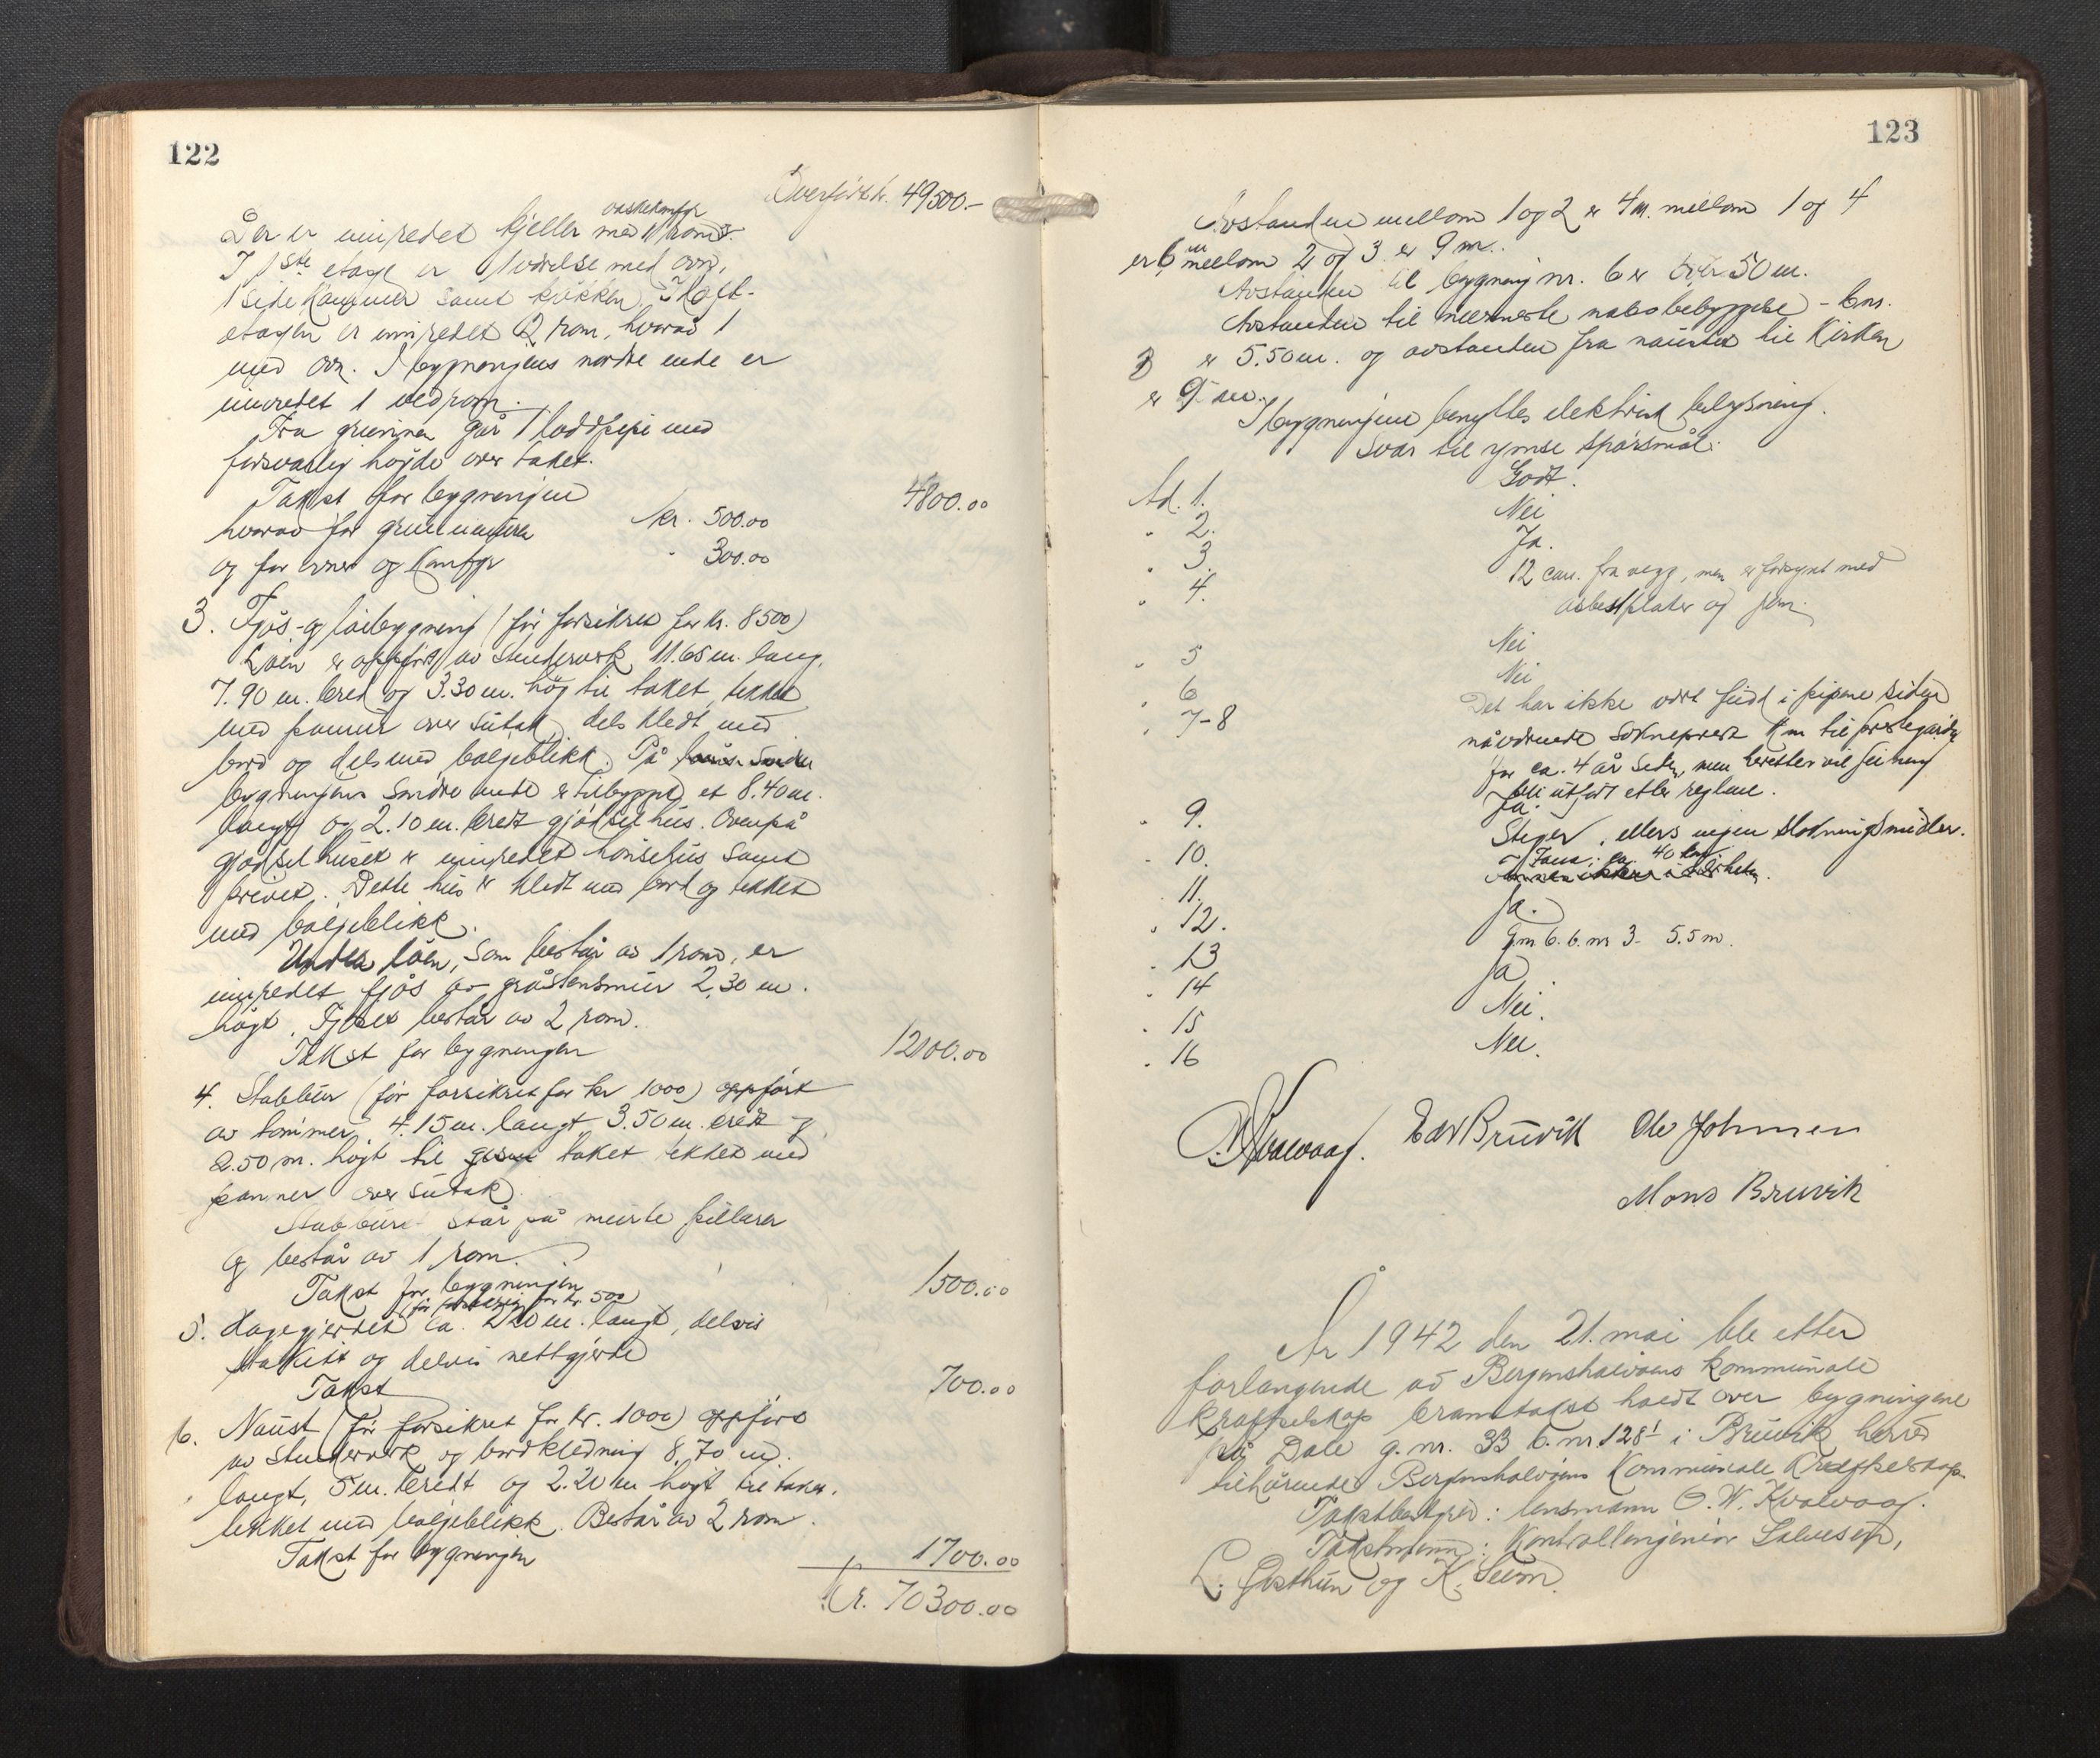 122
Overført kr. 49500.-
vaskekomfyr
Der er innredet kjeller med 1 rom.
I 1ste etage er 1 værelse med ovn,
1 sidekammer samt kjøkken. I loft-
etagen er innredet 2 rom, hvorav 1
med ovn. I bygningens nordre ende er
innredet 1 vedrom.
Fra grunnen går 1 loddpipe med
forsvarlig høyde over taket.
Takst for bygningen 4800.00
hvorav for grunnmuren kr. 500.00
og for ovner og komfyr " 300.00
3. Fjøs- og løebygning (før forsikret for kr. 8500)
Løen er oppført av stenderverk 11.65 m. lang,
7.90 m. bred og 3.30 m. høg til taket, tekket
med panner over sutak, dels kledt med
bord og dels med bølgeblikk. På
bygningens søndre ende er tilbygget et 8.40 m.
langt og 2.10 m. bredt gjødselhus. Ovenpå
gjødselhuset er innredet hønsehus samt
privet. Dette hus er kledt med bord og tekket
med bølgeblikk.
Under løen, som består av 1 rom, er
innredet fjøs av gråstensmur 2,30 m.
høgt. Fjøset består av 2 rom.
Takst for bygningen 12100.00
4. Stabbur (før forsikret for kr 1000) oppført
av tømmer, 4.15 m. langt, 3.50 m. bredt og
2.50 m. høgt til taket tekket med
panner over sutak.
Stabburet står på murte pillarer
og består av 1 rom.
Takst for bygningen 1500.00
(før forsikret for kr. 500)
5. Hagegjerdet ca. 220 m. langt, delvis
stakitt og delvis nettgjerde
Takst 700.00
6. Naust (før forsikret for kr. 1000) oppført
av stenderverk og bordkledning 8.70 m.
langt, 5 m. bredt og 2.20 m høgt til taket,
tekket med bølgeblikk. Består av 2 rom.
Takst for bygningen 1700.00
Kr. 70300.00
123
Avstanden mellom 1 og 2 er 4 m. mellom 1 og 4
er 6 m mellom 2 og 3 er 9 m.
Avstanden til bygning nr. 6 er over 50 m.
Avstanden til nærmeste nabobebyggelse - bnr.
3 er 5.50 m. og avstanden fra naustet til Kirken
er 9 m.
I bygningene benyttes elektrisk belysning.
Svar til ymse spørsmål:
Ad. 1. Godt.
" 2. Nei
" 3. Ja.
" 4. 12 cm. fra vegg, men er forsynt med
asbestplater og jern.
" 5 Nei
" 6 Nei
" 7-8 Det har ikke vært feid i pipene siden
nåværende sokneprest kom til prestegården
for ca. 4 år siden, men herefter vil feiing
bli utført etter reglene.
" 9. Ja.
" 10. Stiger, ellers ingen slokningsmidler.
" 11.
" 12. Ja.
" 13 G.nr. 6. b. nr 3 - 5.5 m.
" 14 Ja
" 15 Nei.
" 16 Nei.
O.W. Kvalvaag. Edv Bruvik Ole Johnsen
Mons Bruvik
År 1942 den 21. mai ble etter
forlangende av Bergenshalvøens kommunale
kraftselskap branntakst holdt over bygningene
på Dale g. nr. 33 b. nr. 128¹ i Bruvik herred
tilhørende Bergenshalvøens Kommunale Kraftselskap.
Takstbestyrer: lensmann O. W. Kvalvaag.
Takstmenn: Kontrollingeniør Salvesen,